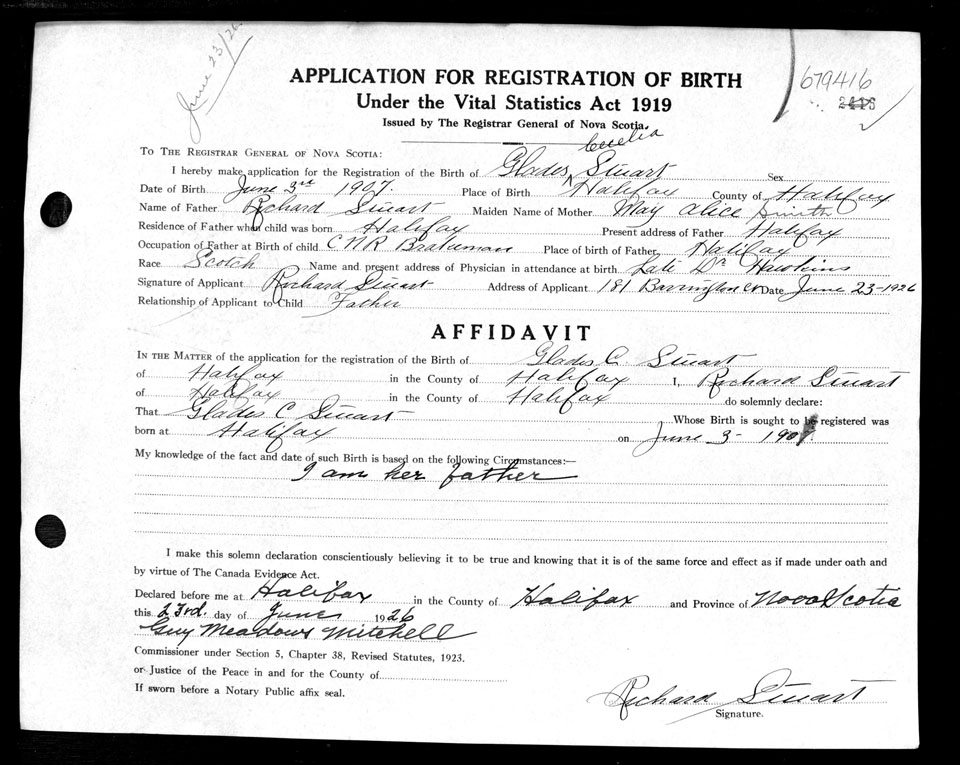 June 23/26
679416
2418
APPLICATION FOR REGISTRATION OF BIRTH
Under the Vital Statistics Act 1919
Issued by The Registrar General of Nova Scotia.
To The Registrar General of Nova Scotia:
Cecelia
I hereby make application for the Registration of the Birth of Glades ^ Stuart Sex
Date of Birth June 3rd 1907. Place of Birth Halifax County of Halifax
Name of Father Richard Stuart Maiden Name of Mother May Alice Smith
Residence of Father when child was born Halifax Present address of Father Halifax
Occupation of Father at Birth of child C.N.R Brakeman Place of birth of Father Halifax
Race Scotch Name and present address of Physician in attendance at birth Late Dr Hawkins
Signature of Applicant Richard Stuart Address of Applicant 181 Barrington St Date June 23-1926
Relationship of Applicant to Child Father
AFFIDAVIT
In the Matter of the application for the registration of the Birth of Glades C. Stuart
of Halifax in the County of Halifax I, Richard Stuart
of Halifax in the County of Halifax do solemnly declare:
That Glades C Stuart Whose Birth is sought to be registered was
born at Halifax on June 3- 1907.
My knowledge of the fact and date of such Birth is based on the following Circumstances:—
I am her father
I make this solemn declaration conscientiously believing it to be true and knowing that it is of the same force and effect as if made under oath and
by virtue of The Canada Evidence Act.
Declared before me at Halifax in the County of Halifax and Province of Nova Scotia
this 23rd. day of June 1926
Guy Meadows Mitchell
Commissioner under Section 5, Chapter 38, Revised Statutes, 1923.
or Justice of the Peace in and for the County of
If sworn before a Notary Public affix seal.
Richard Stuart
Signature.